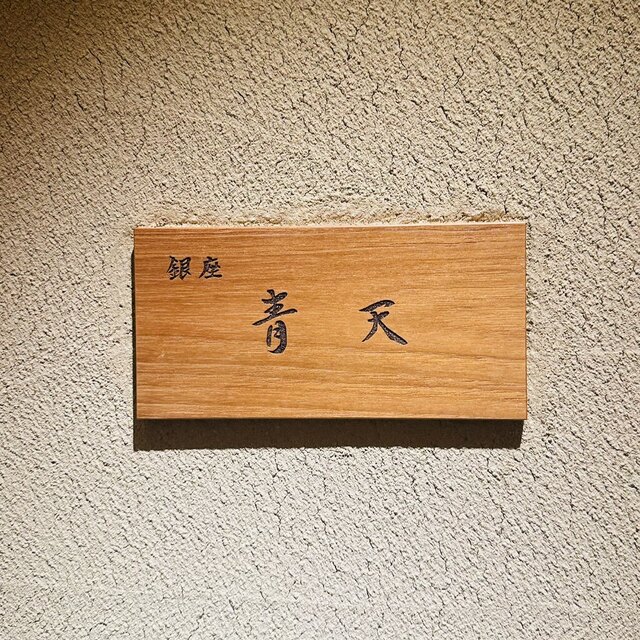 銀座
青天